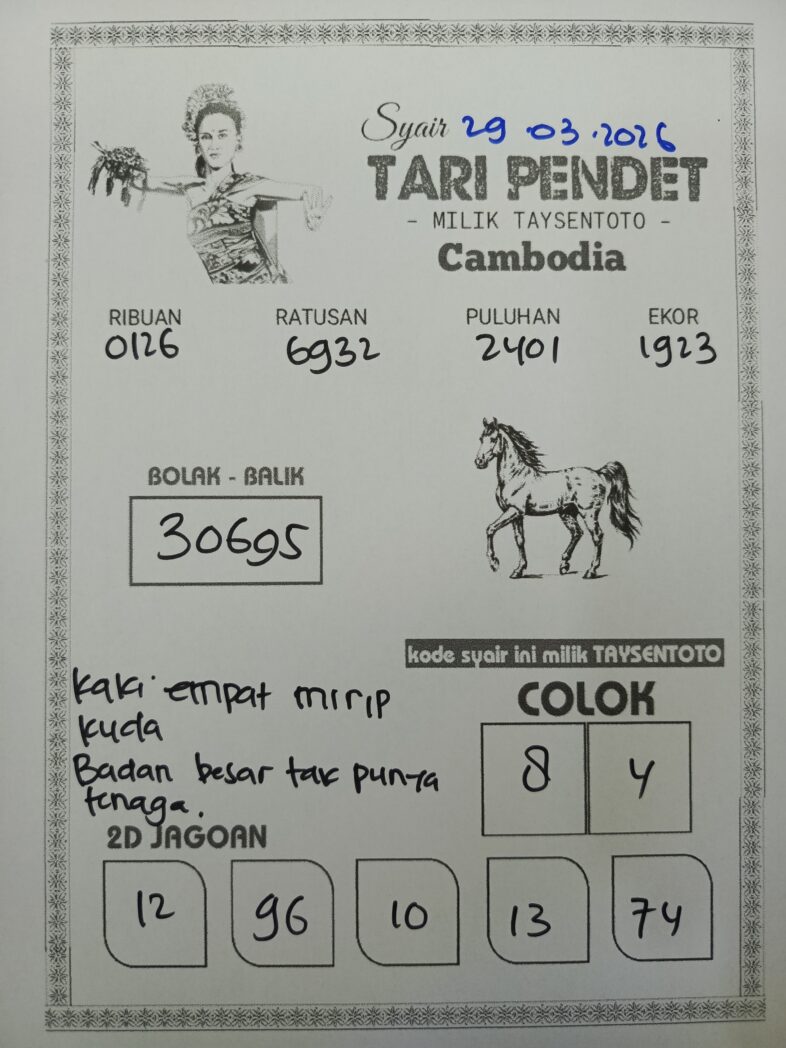 Syair 29.03.2026
TARI PENDET
- MILIK TAYSENTOTO -
Cambodia
RIBUAN RATUSAN PULUHAN EKOR
0126 6932 2401 1923
BOLAK - BALIK
30695
kode syair ini milik TAYSENTOTO
kaki empat mirip
kuda
Badan besar tak punya
tenaga.
COLOK
8 4
2D JAGOAN
12 96 10 13 74